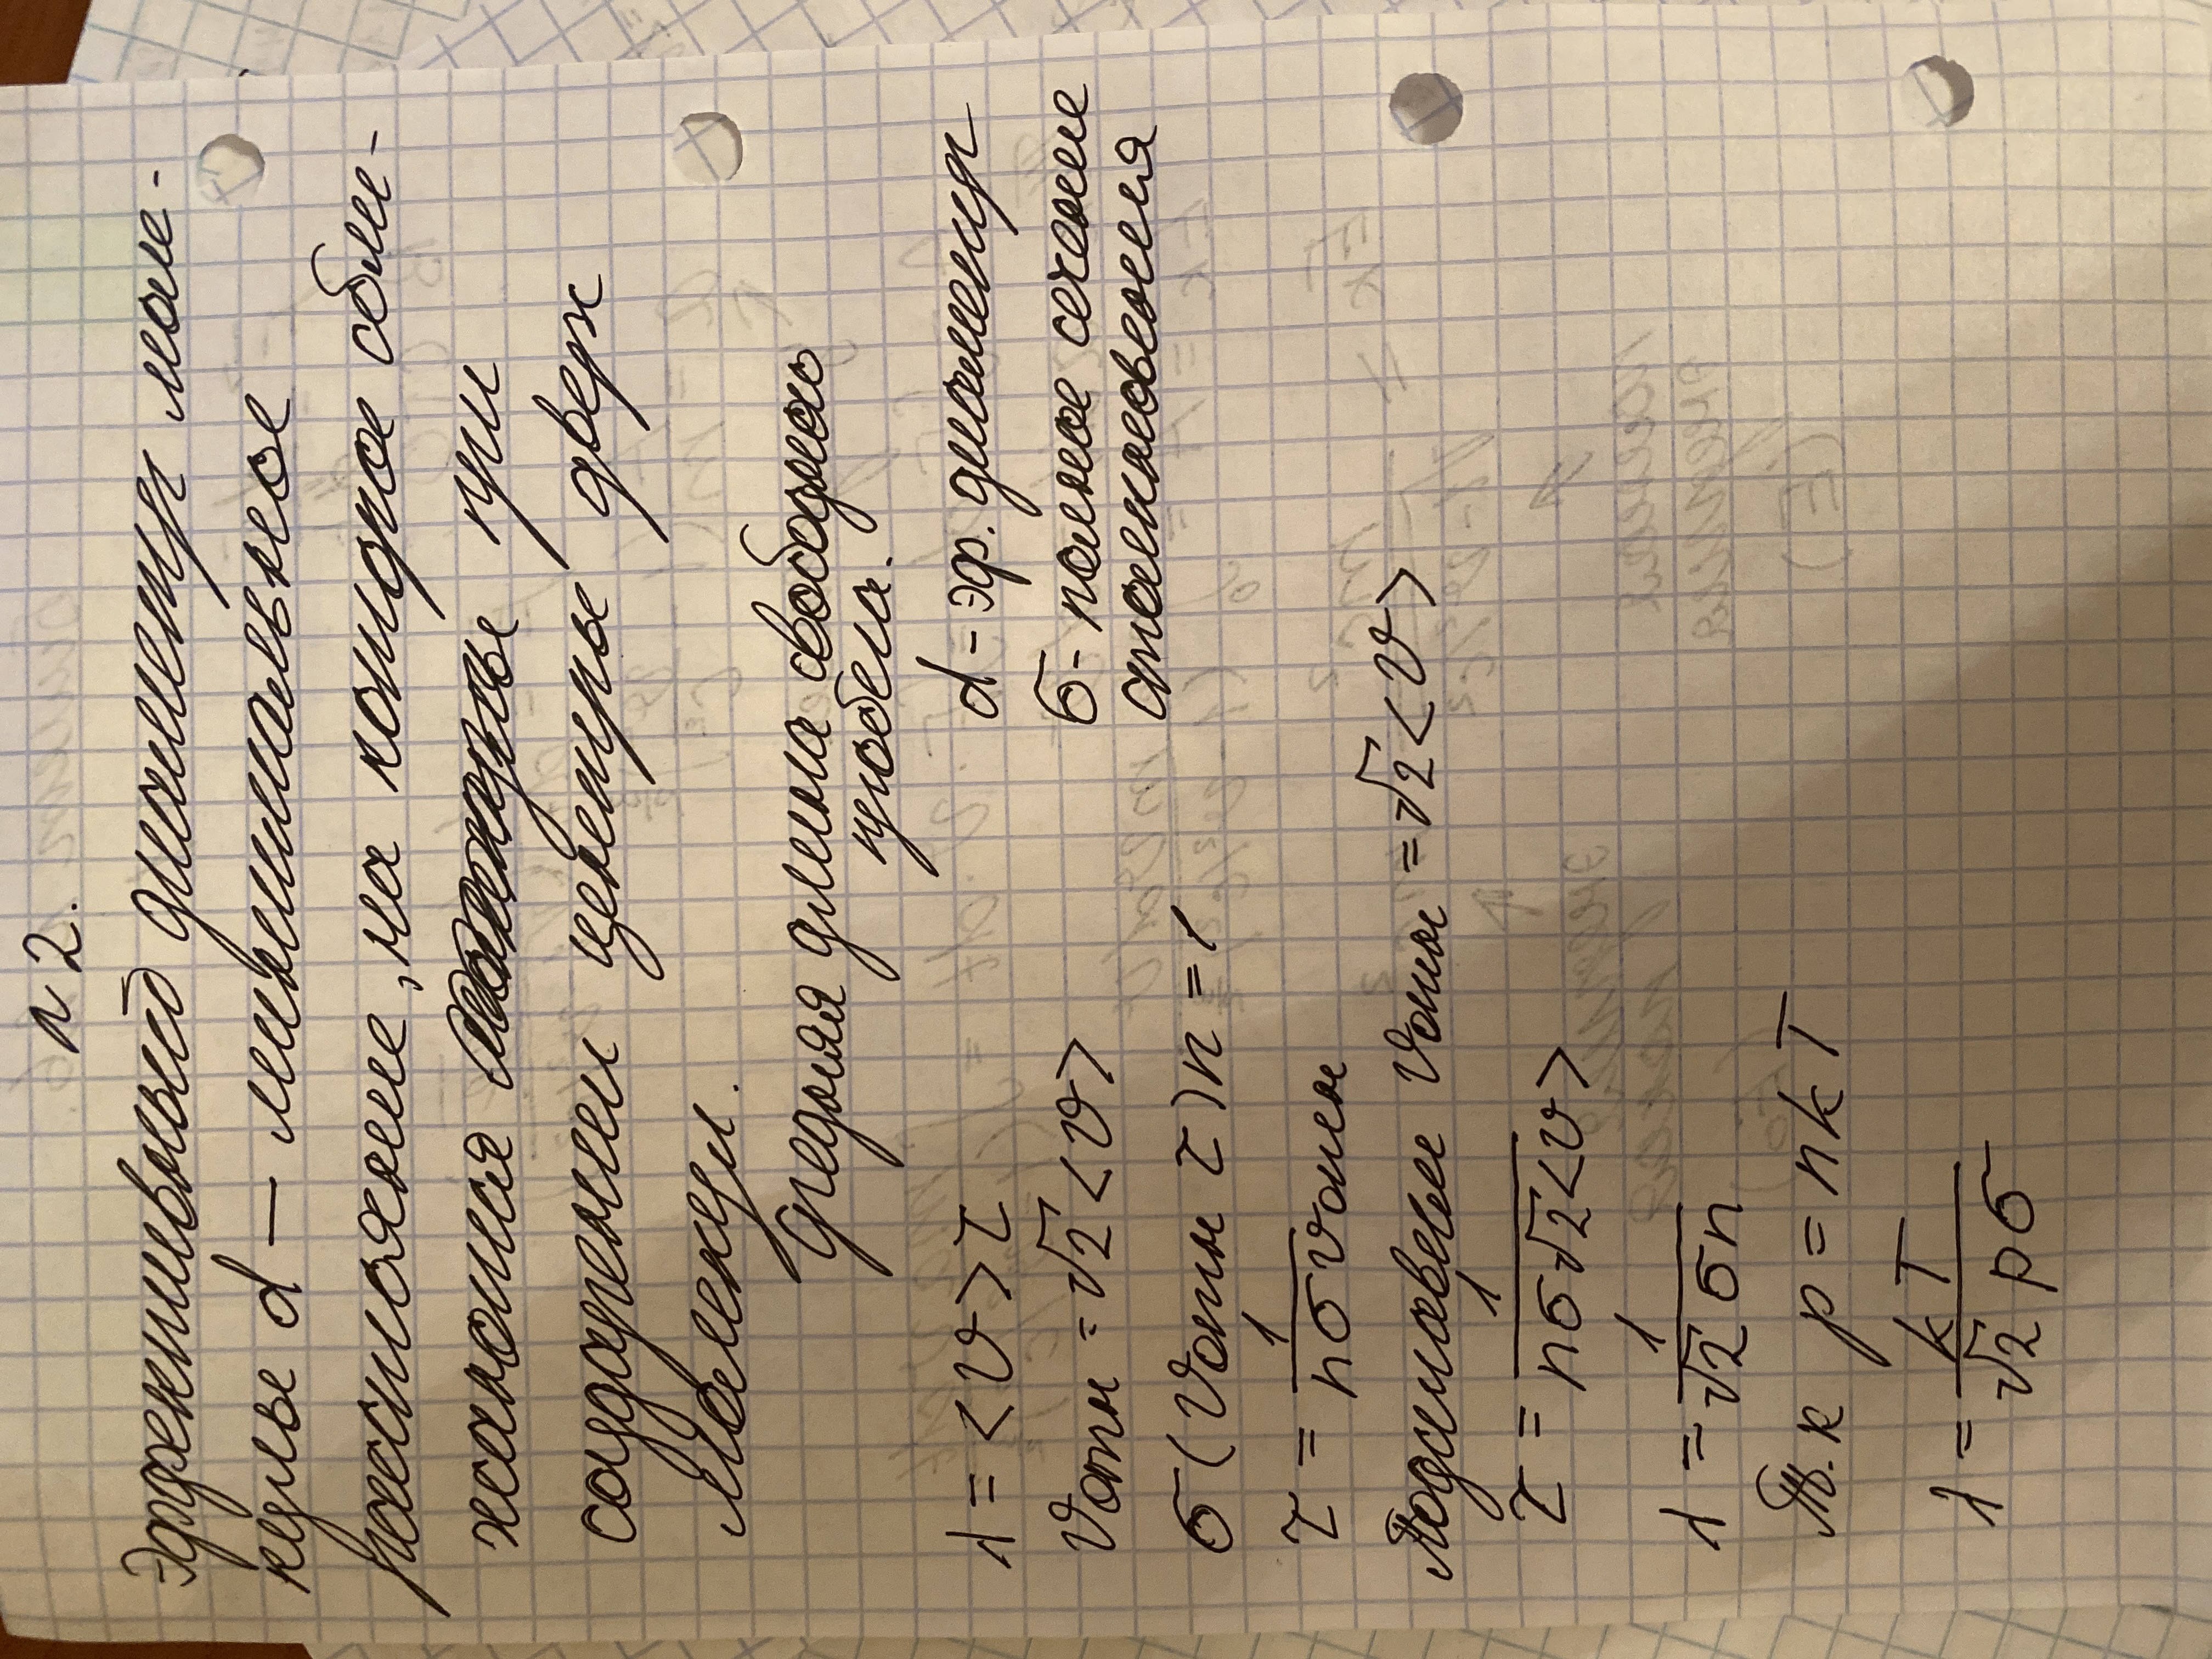 N2.
Эффективный диаметр моле-
кулы d — минимальное
расстояние, на которое сбли-
жаются при
соударении центры двух
молекул.
Средняя длина свободного
пробега.
λ = <v>τ
d - эф. диаметр
vотн = √2 <v>
σ - полное сечение
столкновения
σ (vотн τ) n = 1
τ = 1/(nσvотн)
Подставим vотн = √2 <v>
τ = 1/(nσ√2<v>)
λ = 1/(√2 σn)
Т.к p = nkT
λ = kT/(√2 pσ)